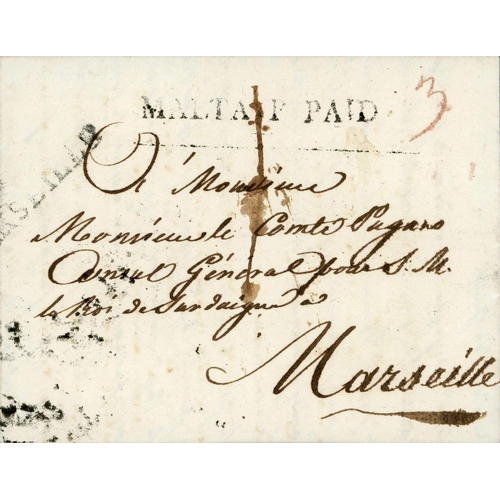 MALTA P PAID
3
A Monsieur
Monsieur le Comte Pagano
Consul Général pour S. M.
le Roi de Sardaigne à
Marseille